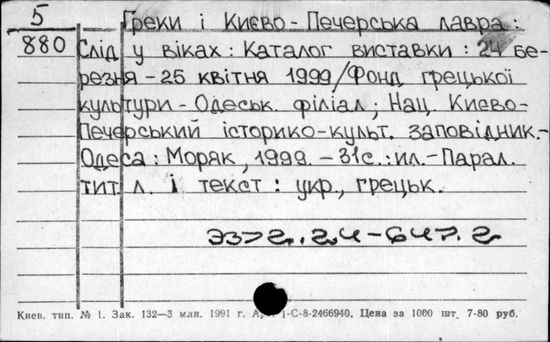 5
880
Греки і Києво-Печерська лавра:
Слід у віках: Каталог виставки: 24 бе-
резня - 25 квітня 1999/Фонд грецької
культури - Одеськ. філіал; Нац. Києво-
Печерський історико-культ. заповідник.-
Одеса: Моряк, 1999. - 31с.: ил.- Парал.
тит. л. і текст: укр., грецьк.
Киев. тип. № 1. Зак. 132—3 млн. 1991 г. 1-С-8-2466940. Цена за 1000 шт. 7-80 руб.